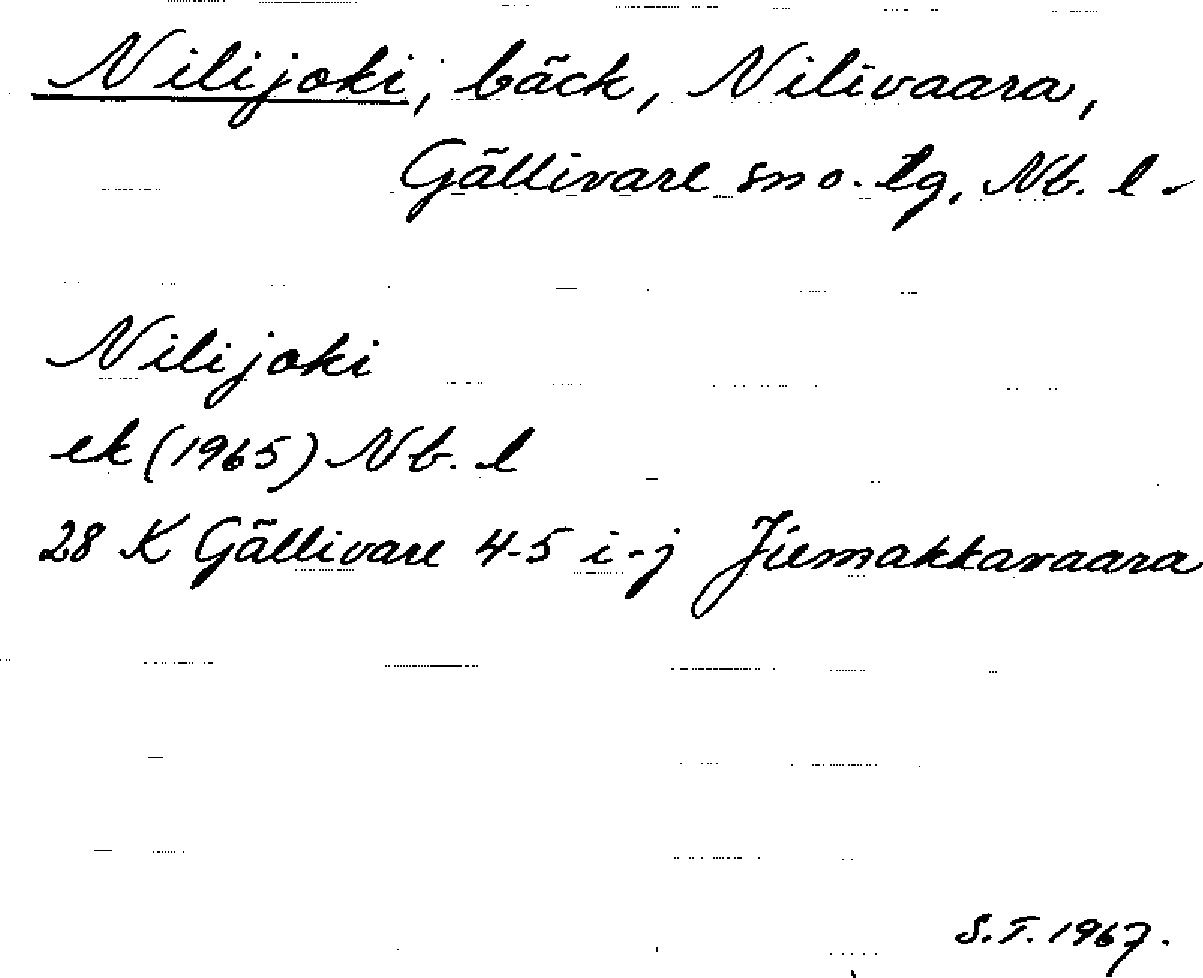 Nilijoki, bäck, Nilivaara,
Gällivare sn o. tg, Nb. l.
Nilijoki
ek (1965) Nb. l
28 K Gällivare 4-5 i-j Jiemakkavaara
S.T. 1967.